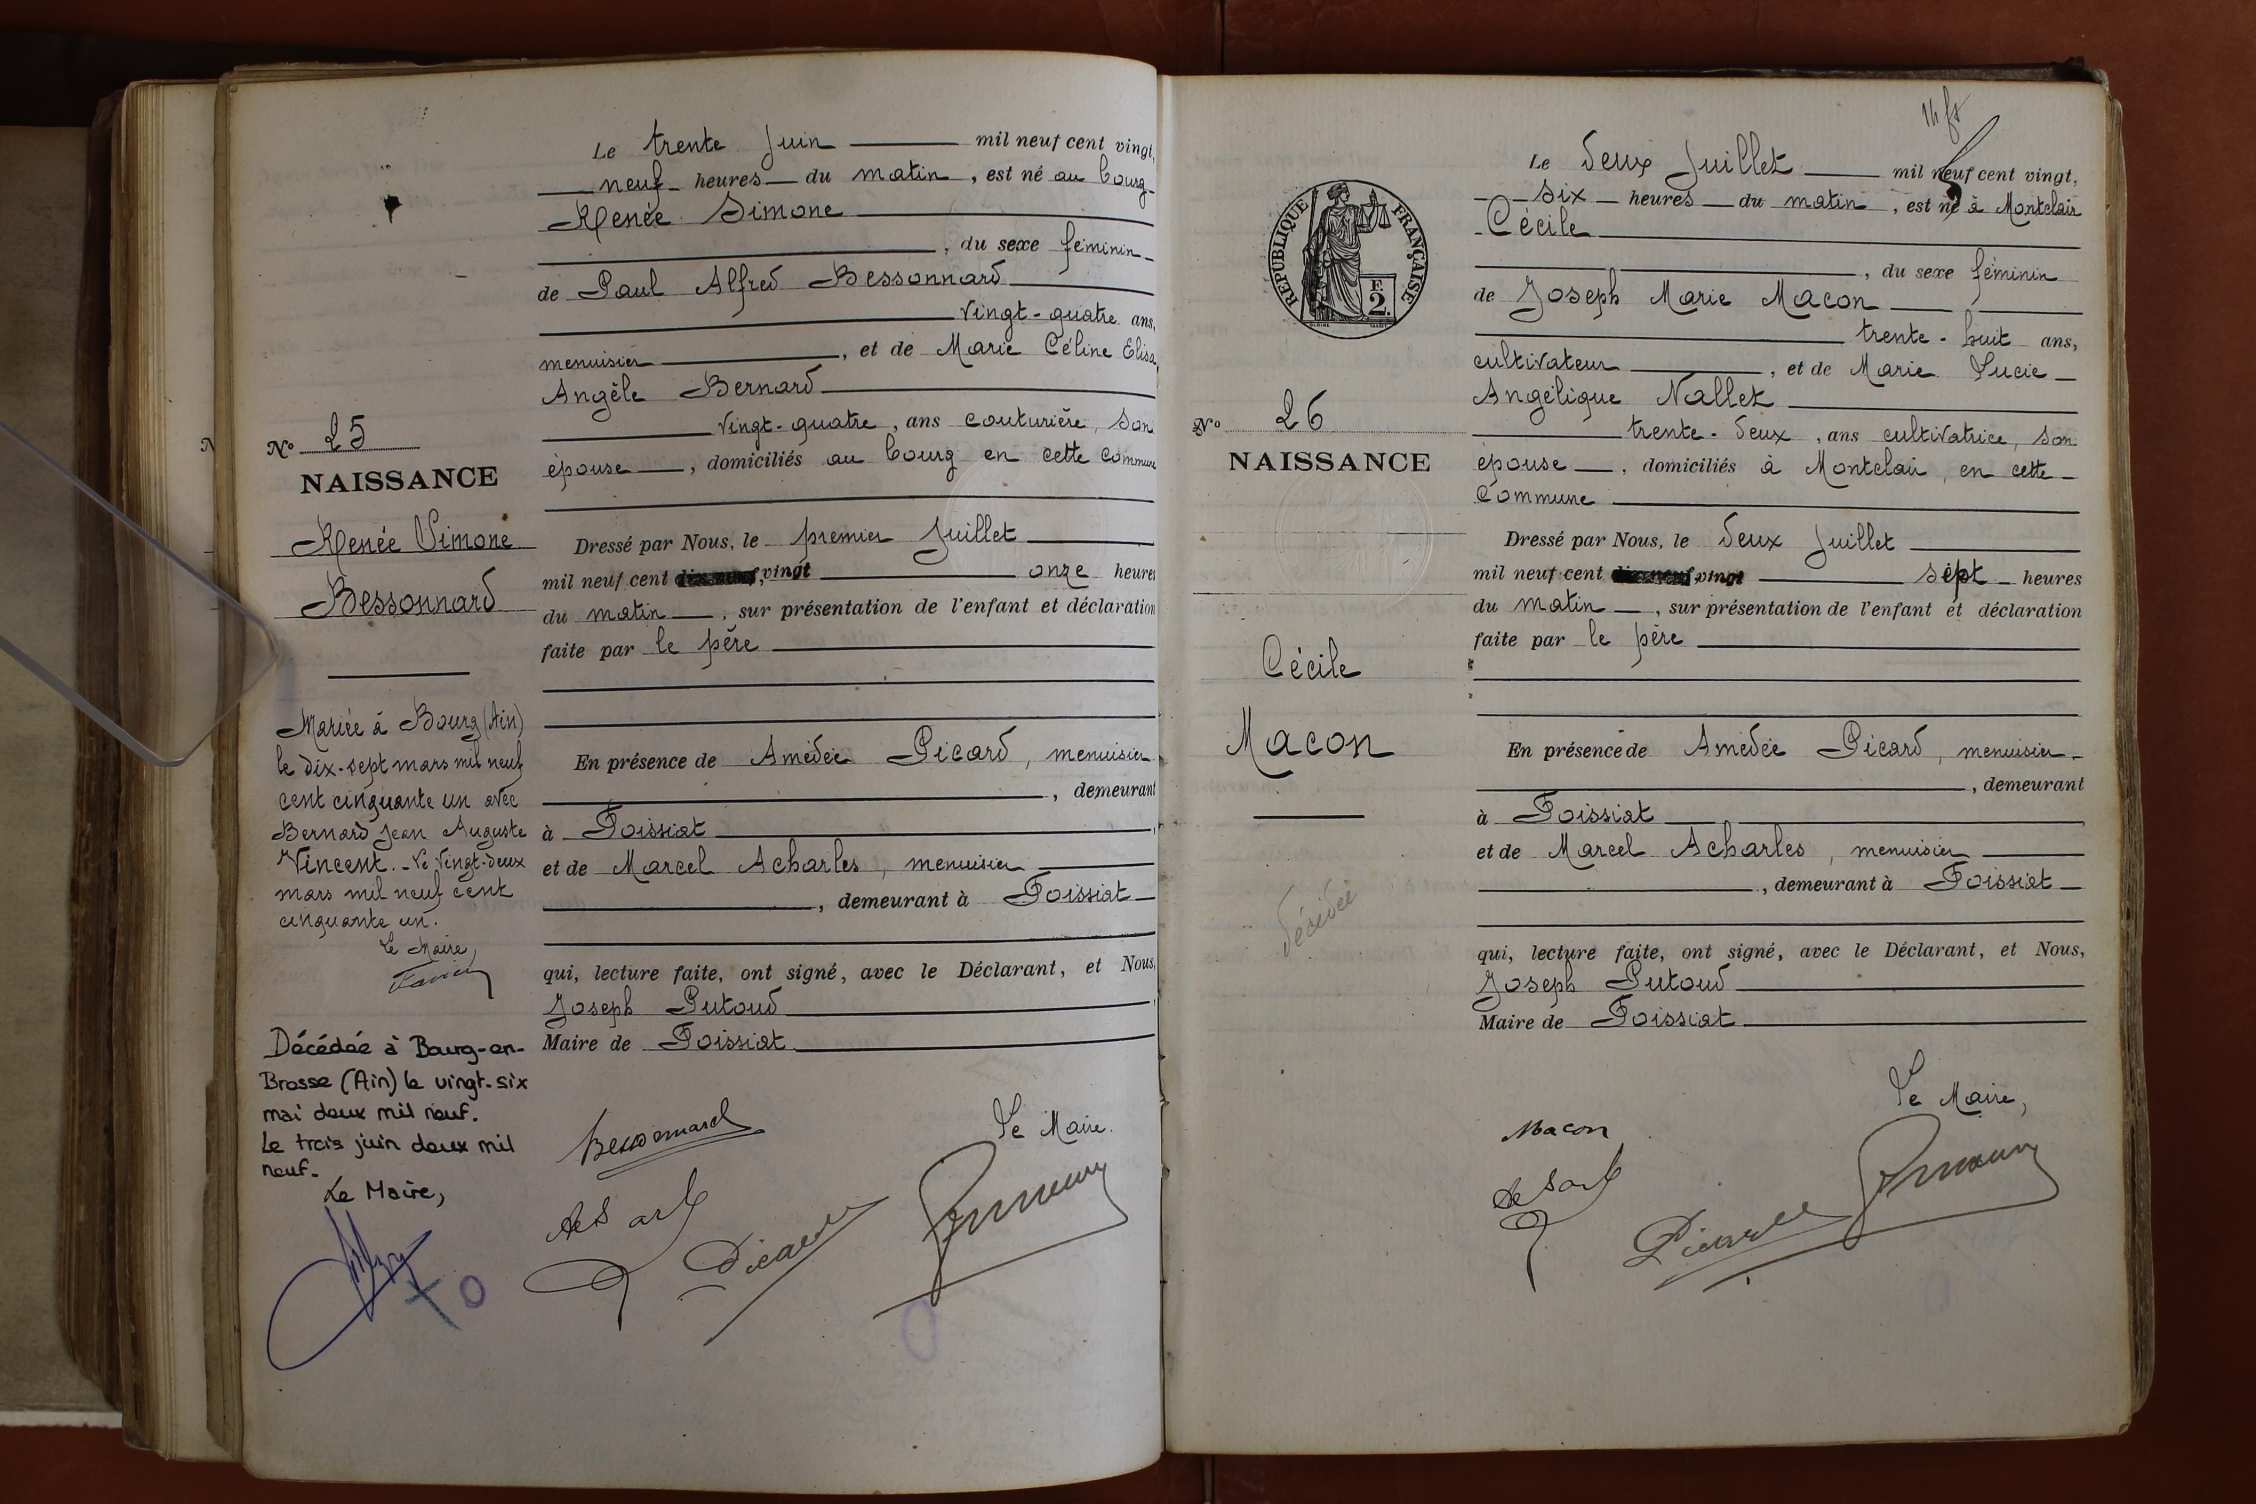 Le trente Juin mil neuf cent vingt,
neuf heures du matin, est né au bourg
Renée Simone
, du sexe féminin
de Paul Alfred Bessonnard
vingt-quatre ans,
menuisier, et de Marie Céline Elisa
Angèle Bernard
vingt-quatre, ans couturière, son
épouse, domiciliés au bourg en cette commune
Dressé par Nous, le premier Juillet
mil neuf cent vingt onze heures
du matin, sur présentation de l'enfant et déclaration
faite par le père
En présence de Amédée Picard, menuisier
, demeurant
à Foissiat
et de Marcel Acharles, menuisier
, demeurant à Foissiat
qui, lecture faite, ont signé, avec le Déclarant, et Nous,
Joseph Putoud
Maire de Foissiat
Le Maire.
Bessonnard
Picard
N° 25
NAISSANCE
Renée Simone
Bessonnard
Mariée à Bourg (Ain)
le dix-sept mars mil neuf
cent cinquante un avec
Bernard Jean Auguste
Vincent. Le vingt-deux
mars mil neuf cent
cinquante un.
Le Maire,
Décédée à Bourg-en-
Brosse (Ain) le vingt-six
mai deux mil neuf.
Le trois juin deux mil
neuf.
Le Maire,
RÉPUBLIQUE FRANÇAISE
F.
2.
N° 26
NAISSANCE
Cécile
Macon
décédée
Le deux Juillet mil neuf cent vingt,
six heures du matin, est né à Montclair
Cécile
, du sexe féminin
de Joseph Marie Macon
trente-huit ans,
cultivateur, et de Marie Lucie
Angélique Nallet
trente-deux, ans cultivatrice, son
épouse, domiciliés à Montclair, en cette
commune
Dressé par Nous, le deux Juillet
mil neuf cent vingt sept heures
du matin, sur présentation de l'enfant et déclaration
faite par le père
En présence de Amédée Picard, menuisier
, demeurant
à Foissiat
et de Marcel Acharles, menuisier
, demeurant à Foissiat
qui, lecture faite, ont signé, avec le Déclarant, et Nous,
Joseph Putoud
Maire de Foissiat
Le Maire,
Macon
Picard